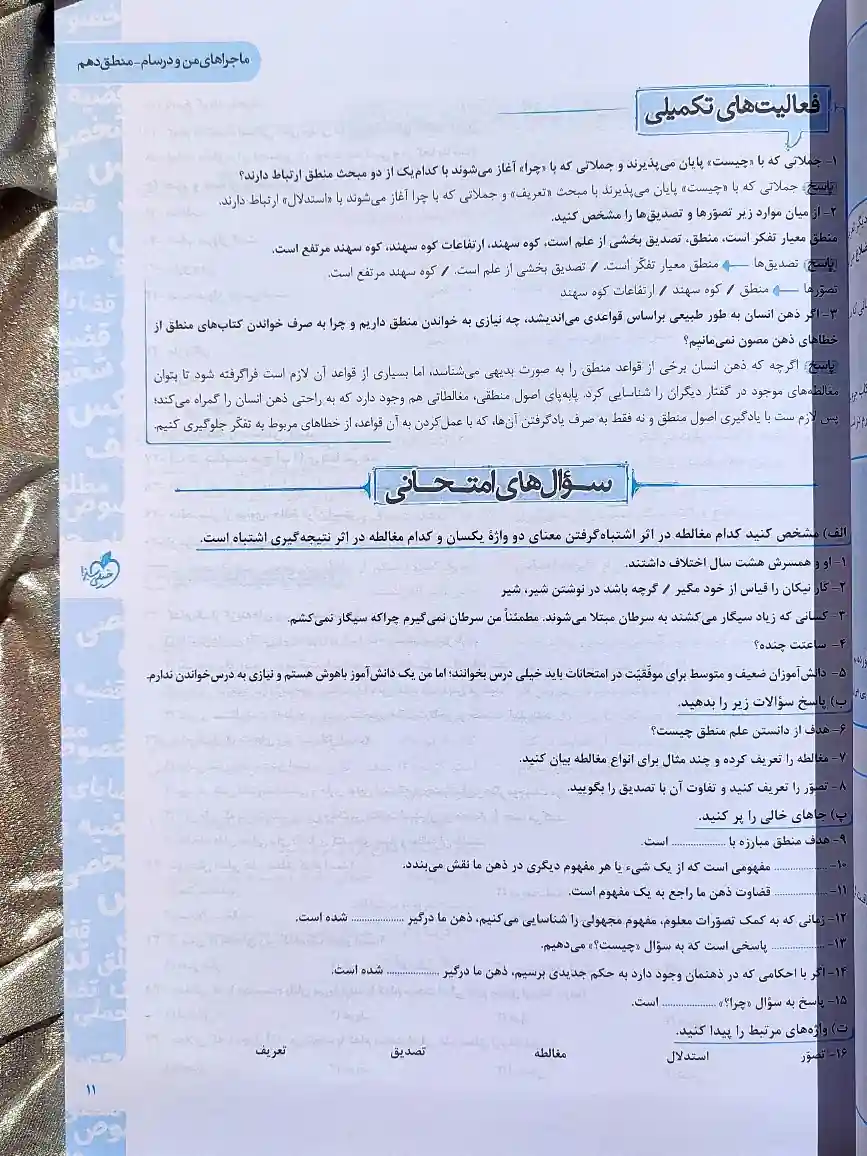 ماجراهای من و درسام - منطق دهم
فعالیت‌های تکمیلی
۱- جملاتی که با «چیست» پایان می‌پذیرند و جملاتی که با «چرا» آغاز می‌شوند با کدام‌یک از دو مبحث منطق ارتباط دارند؟
پاسخ جملاتی که با «چیست» پایان می‌پذیرند با مبحث «تعریف» و جملاتی که با چرا آغاز می‌شوند با «استدلال» ارتباط دارند.
۲- از میان موارد زیر تصوّرها و تصدیق‌ها را مشخص کنید.
منطق معیار تفکر است، منطق، تصدیق بخشی از علم است، کوه سهند، ارتفاعات کوه سهند، کوه سهند مرتفع است.
پاسخ تصدیق‌ها ← منطق معیار تفکّر است. / تصدیق بخشی از علم است. / کوه سهند مرتفع است.
تصوّرها ← منطق / کوه سهند / ارتفاعات کوه سهند
۳- اگر ذهن انسان به طور طبیعی براساس قواعدی می‌اندیشد، چه نیازی به خواندن منطق داریم و چرا به صرف خواندن کتاب‌های منطق از
خطاهای ذهن مصون نمی‌مانیم؟
پاسخ اگرچه که ذهن انسان برخی از قواعد منطق را به صورت بدیهی می‌شناسد، اما بسیاری از قواعد آن لازم است فراگرفته شود تا بتوان
مغالطه‌های موجود در گفتار دیگران را شناسایی کرد. پابه‌پای اصول منطقی، مغالطاتی هم وجود دارد که به راحتی ذهن انسان را گمراه می‌کند؛
پس لازم ست با یادگیری اصول منطق و نه فقط به صرف یادگرفتن آن‌ها، که با عمل‌کردن به آن قواعد، از خطاهای مربوط به تفکّر جلوگیری کنیم.
سؤال‌های امتحانی
الف) مشخص کنید کدام مغالطه در اثر اشتباه‌گرفتن معنای دو واژهٔ یکسان و کدام مغالطه در اثر نتیجه‌گیری اشتباه است.
۱- او و همسرش هشت سال اختلاف داشتند.
۲- کار نیکان را قیاس از خود مگیر / گرچه باشد در نوشتن شیر، شیر
۳- کسانی که زیاد سیگار می‌کشند به سرطان مبتلا می‌شوند. مطمئناً من سرطان نمی‌گیرم چراکه سیگار نمی‌کشم.
۴- ساعتت چنده؟
۵- دانش‌آموزان ضعیف و متوسط برای موفّقیّت در امتحانات باید خیلی درس بخوانند؛ اما من یک دانش‌آموز باهوش هستم و نیازی به درس‌خواندن ندارم.
ب) پاسخ سؤالات زیر را بدهید.
۶- هدف از دانستن علم منطق چیست؟
۷- مغالطه را تعریف کرده و چند مثال برای انواع مغالطه بیان کنید.
۸- تصوّر را تعریف کنید و تفاوت آن با تصدیق را بگویید.
پ) جاهای خالی را پر کنید.
۹- هدف منطق مبارزه با .............. است.
۱۰- .............. مفهومی است که از یک شیء یا هر مفهوم دیگری در ذهن ما نقش می‌بندد.
۱۱- .............. قضاوت ذهن ما راجع به یک مفهوم است.
۱۲- زمانی که به کمک تصوّرات معلوم، مفهوم مجهولی را شناسایی می‌کنیم، ذهن ما درگیر .............. شده است.
۱۳- .............. پاسخی است که به سؤال «چیست؟» می‌دهیم.
۱۴- اگر با احکامی که در ذهنمان وجود دارد به حکم جدیدی برسیم، ذهن ما درگیر .............. شده است.
۱۵- پاسخ به سؤال «چرا؟» .............. است.
ت) واژه‌های مرتبط را پیدا کنید.
۱۶- تصوّر استدلال مغالطه تصدیق تعریف
۱۱